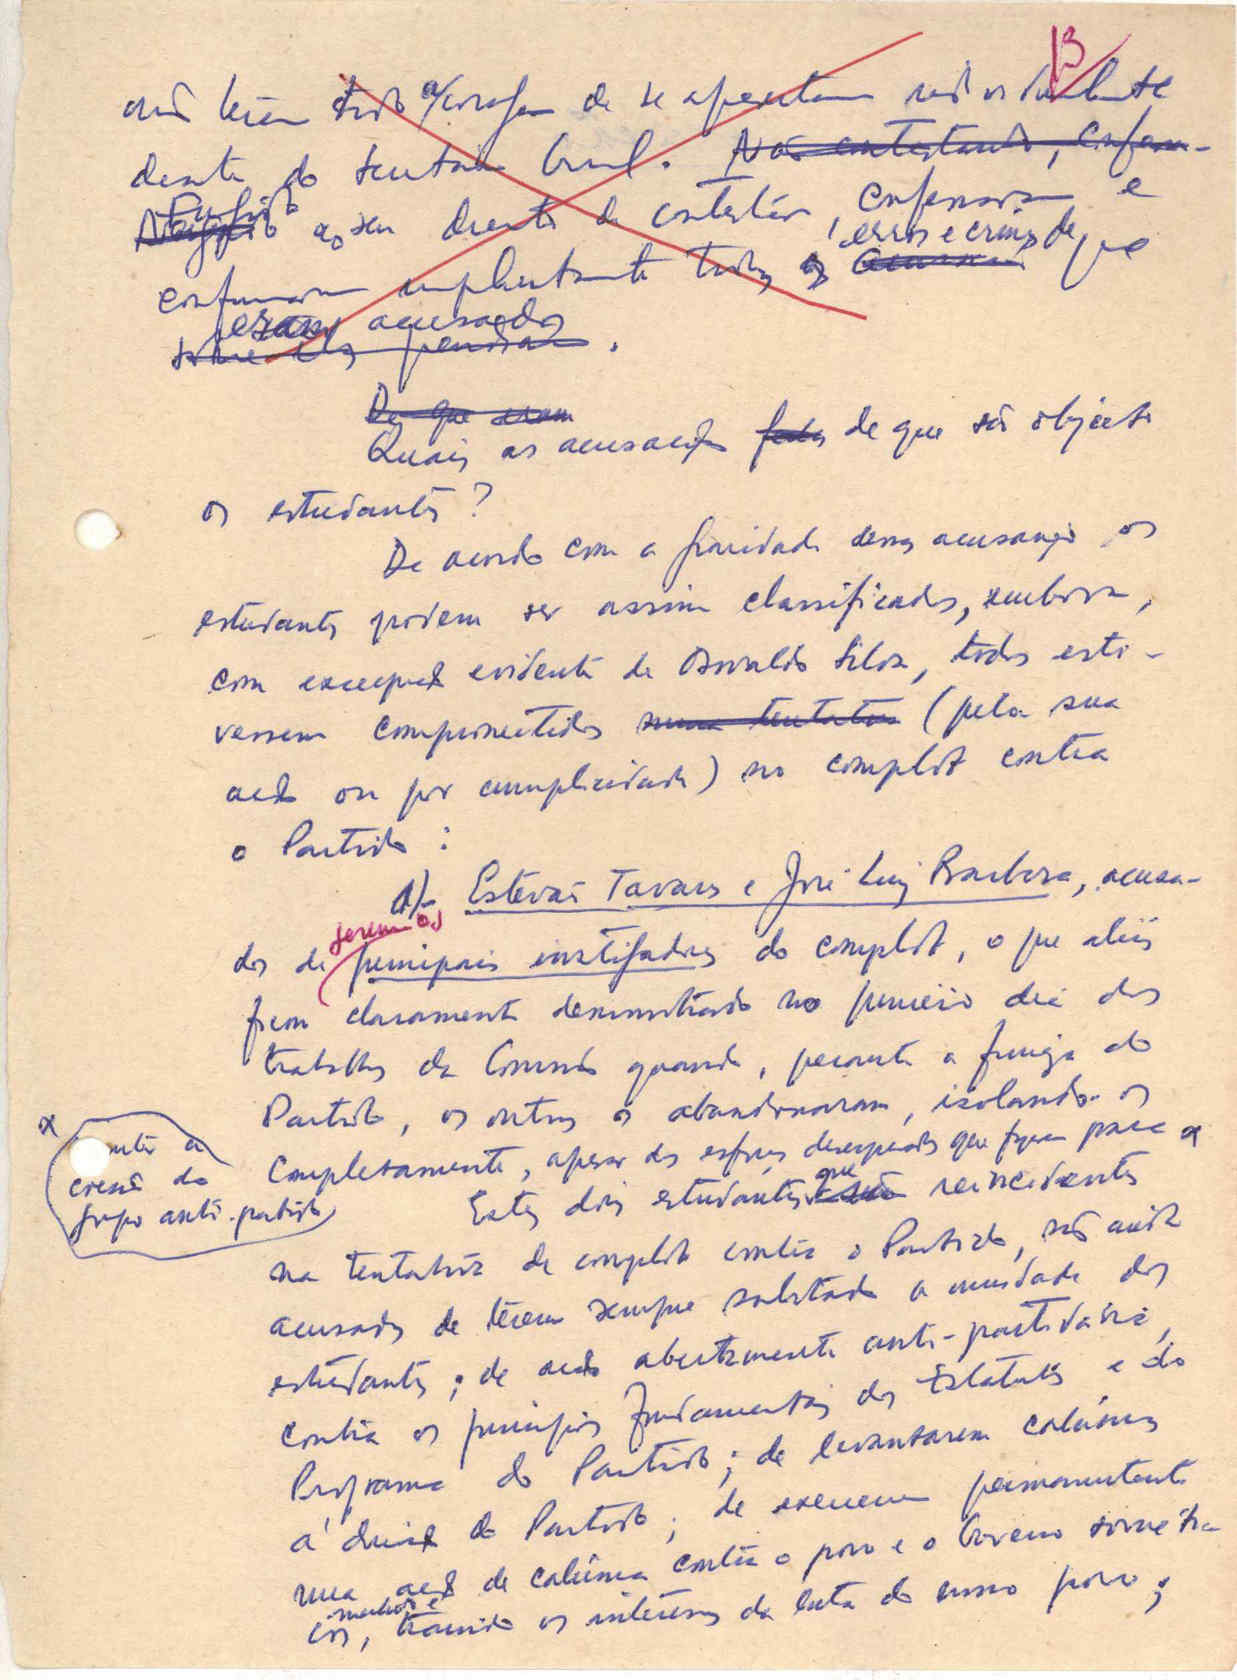 13
não terem tido a coragem de se apresentarem individualmente
deante do secretário Geral. Não contestando, confessa-
ao seu direito de contestar, confessaram e
confirmaram implicitamente todos os erros e crimes de que
eram acusados
sobre eles pendiam.
De que eram
Quais as acusações feitas de que são objecto
os estudantes?
De acordo com a gravidade dessas acusações os
estudantes podem ser assim classificados, embora,
com excepção evidente de Osvaldo Silva, todos esti-
vessem comprometidos numa tentativa (pela sua
acção ou por cumplicidade) no complot contra
o Partido:
1)- Estevão Tavares e José Luiz Barbosa, acusa-
dos de serem os principais instigadores do complot, o que aliás
ficou claramente demonstrado no primeiro dia dos
trabalhos da Comissão quando, perante a firmeza do
Partido, os outros os abandonaram, isolando-os
completamente, apesar dos esforços desesperados que fizeram para x
x manter a
coesão do
grupo anti-partido
Estes dois estudantes, que são reincidentes
na tentativa de complot contra o Partido, são ainda
acusados de terem sempre sabotado a unidade dos
estudantes; de acção abertamente anti-partidária,
contra os princípios fundamentais dos Estatutos e do
Programa do Partido; de levantarem calúnias
à direcção do Partido; de exercerem permanentemente
uma acção de calúnia contra o povo e o Governo soviéti-
cos, traindo os interesses da luta do nosso povo;